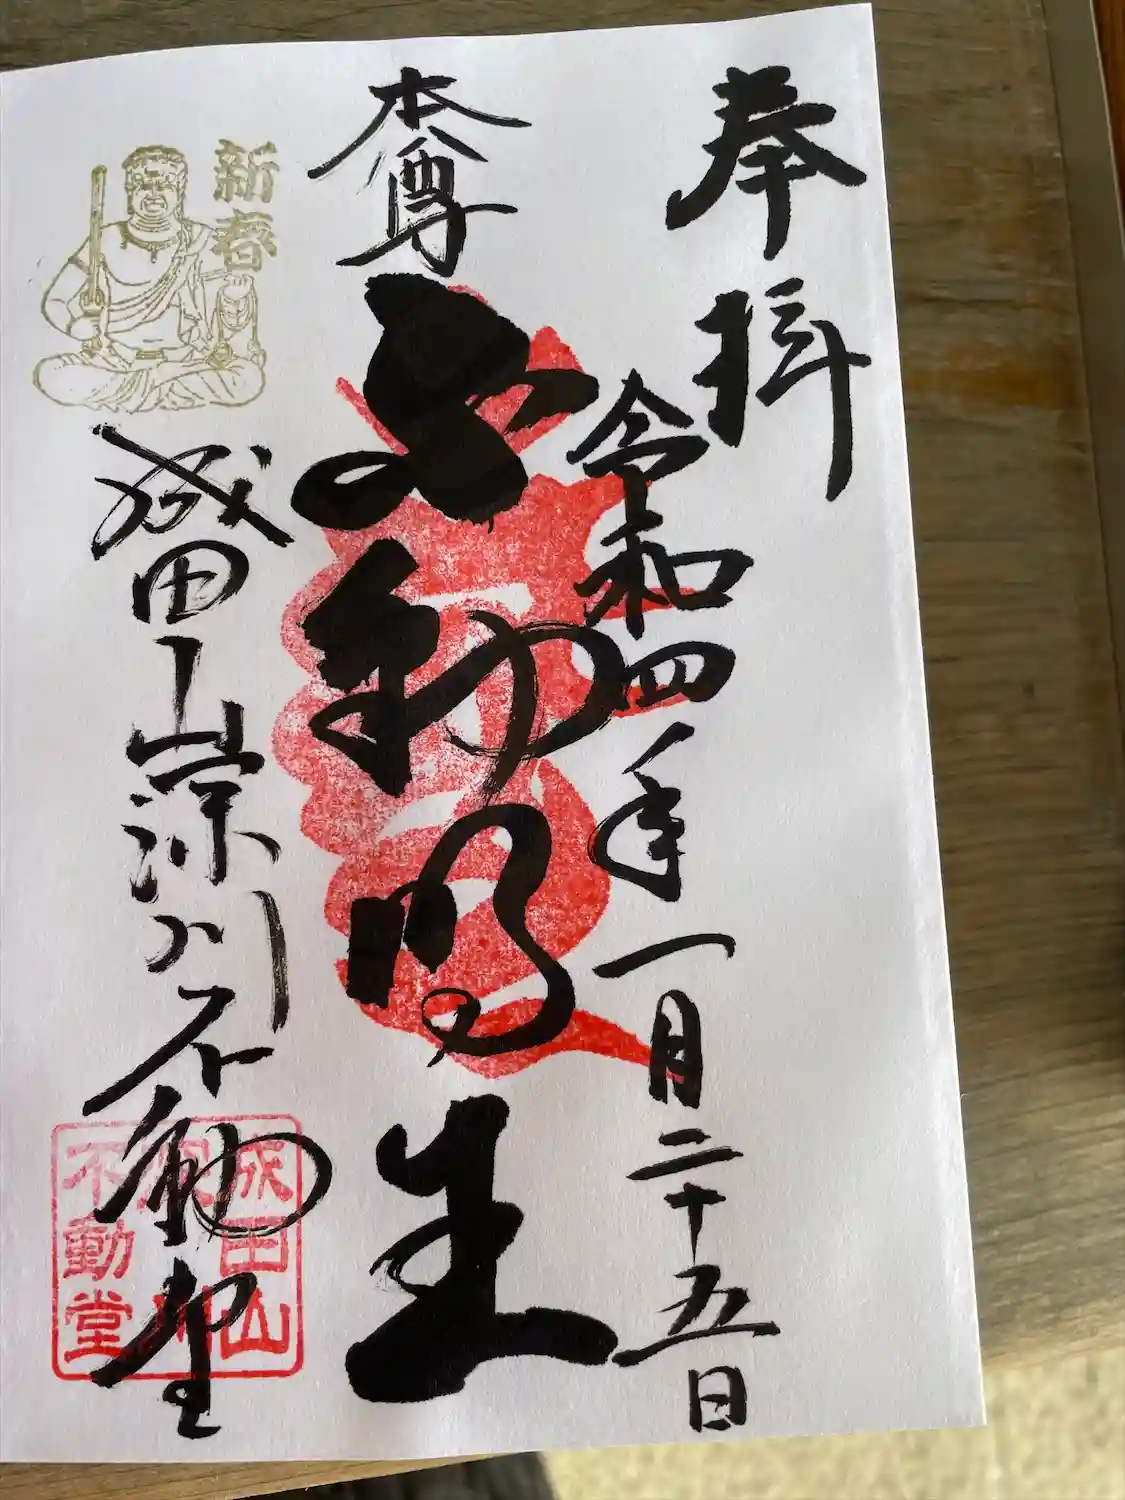 奉拝
令和四年一月二十五日
本尊
不動明王
新春
成田山深川不動堂
成田山
深川
不動堂